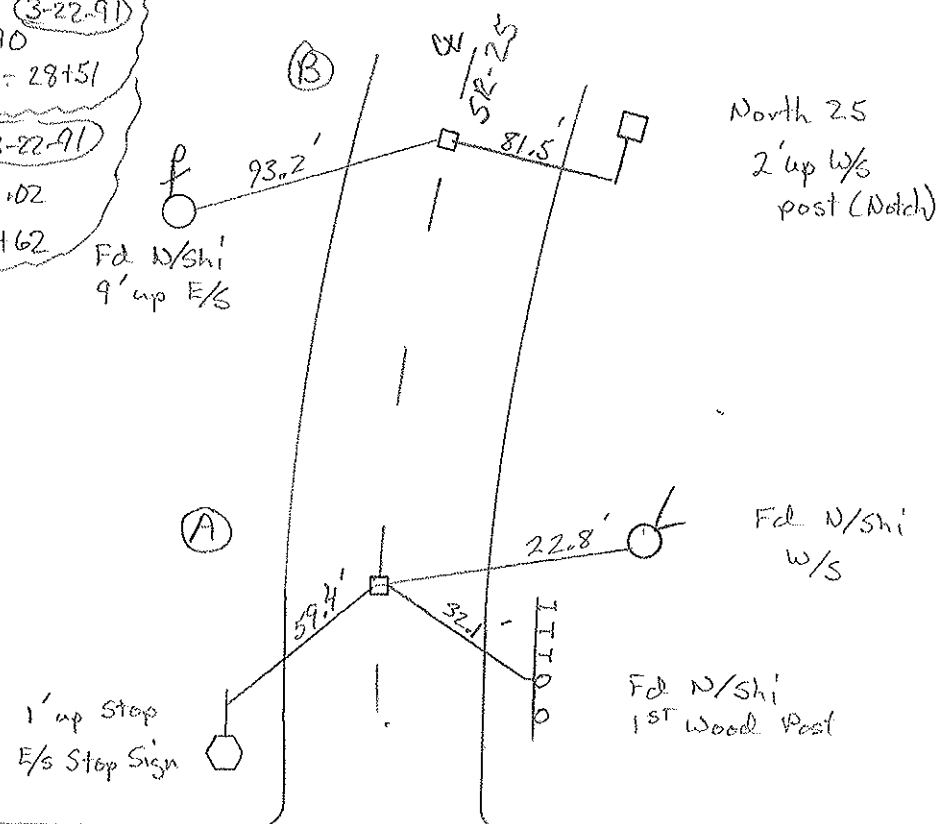 3-22-91
90
28+51
3-22-91
.02
+62
B
SR-25
93.2'
81.5'
North 25
2' up W/s
post (Notch)
Fd N/Shi
9' up E/S
A
22.8'
Fd N/Shi
W/S
59.4'
32.1
Fd N/Shi
1ST Wood Post
1' up Stop
E/s Stop Sign